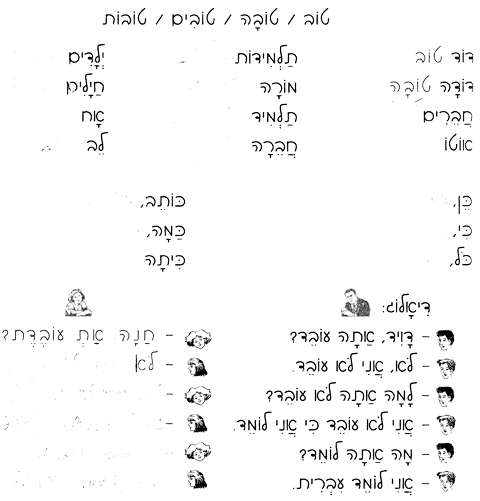 טוֹב / טוֹבָה / טוֹבִים / טוֹבוֹת
דוֹד טוֹב תַלְמִידוֹת יְלָדִים
דוֹדָה טוֹבָה מוֹרָה חַיָלִים
חֲבֵרִים תַלְמִיד אָח
אוֹטוֹ חֲבֵרָה לֵב
כֵּן, כּוֹתֵב,
כִּי, כַּמָה,
כֹּל, כִּיתָה
דִיאָלוֹג:
– דָוִיד, אַתָה עוֹבֵד? – חַנָה, אַתְ עוֹבֶדֶת?
– לֹא, אֲנִי לֹא עוֹבֵד. – לֹא
– לָמָה אַתָה לֹא עוֹבֵד? –
– אֲנִי לֹא עוֹבֵד כִּי אֲנִי לוֹמֵד. –
– מָה אַתָה לוֹמֵד? –
– אֲנִי לוֹמֵד עִבְרִית. –